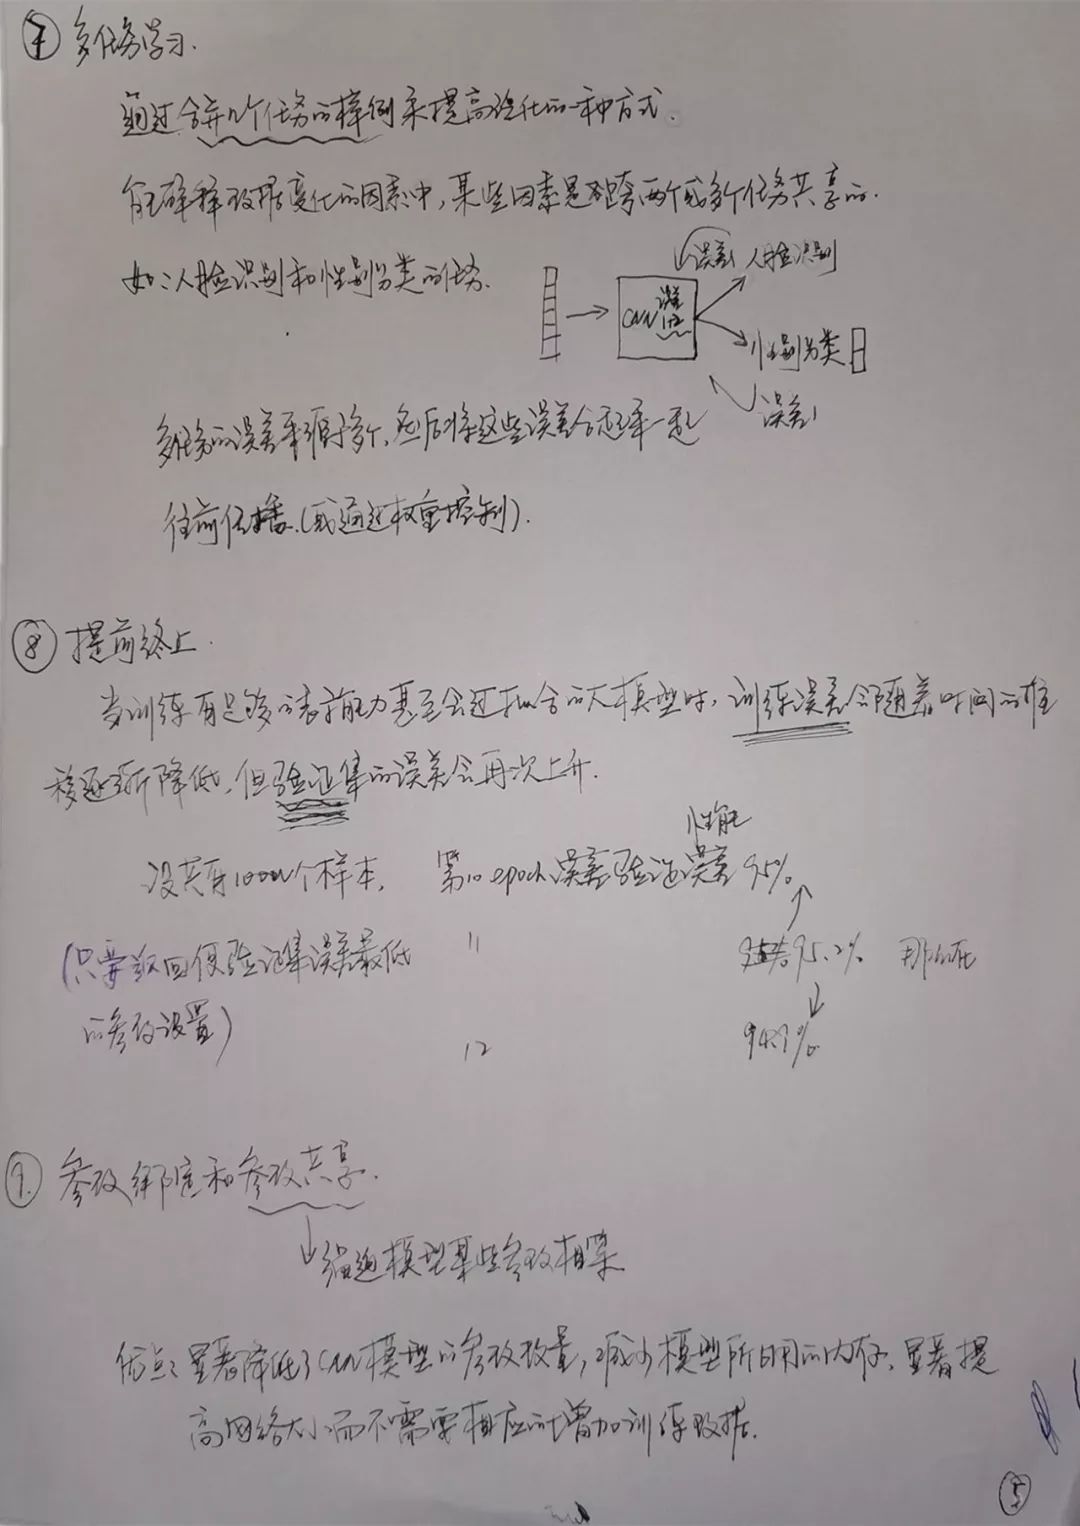 ⑦ 多任务学习.
通过合并几个任务的样例来提高泛化的一种方式.
能解释数据变化的因素中,某些因素是跨两个或多个任务共享的.
误差 人脸识别
如:人脸识别和性别分类的任务.
CNN
性别分类
误差
多任务的误差有很多个,然后将这些误差合起来一起
往前传播.(或通过权重控制).
⑧ 提前终止.
当训练有足够的表示能力甚至会过拟合的大模型时,训练误差会随着时间的推
移逐渐降低,但验证集的误差会再次上升.
性能
设共有10000个样本, 第10 epoch 误差 验证误差 95%
(只要返回使验证集误差最低 11 95.2%
的参数设置) 12 94.7%
⑨ 参数绑定和参数共享.
强迫模型某些参数相等
优点:显著降低了CNN模型的参数数量,减少模型所占用的内存,显著提
高网络大小而不需要相应的增加训练数据.
⑤